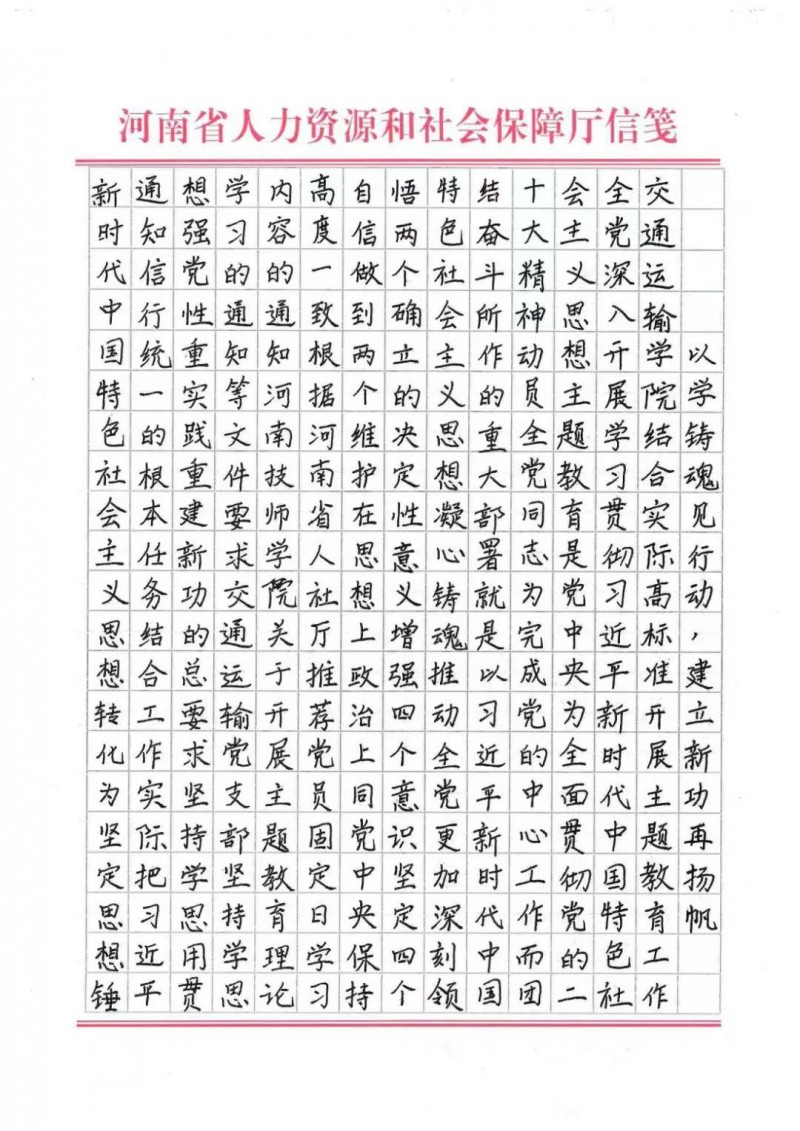 河南省人力资源和社会保障厅信笺
以学铸魂见行动，建立新功再扬帆
交通运输学院结合实际高标准开展主题教育工作
全党深入开展学习贯彻习近平新时代中国特色社
会主义思想主题教育是党中央为全面贯彻党的二
十大精神动员全党同志为完成党的中心工作而团
结奋斗所作的重大部署就是以习近平新时代中国
特色社会主义思想凝心铸魂推动全党更加深刻领
悟两个确立的决定性意义增强四个意识坚定四个
自信做到两个维护在思想上政治上同党中央保持
高度一致根据河南省人社厅推荐党员固定日学习
内容的通知河南技师学院关于开展主题教育理论
学习的通知等文件要求交通运输党支部坚持学思
想强党性重实践重建新功的总要求坚持学思用贯
通知信行统一的根本任务结合工作实际把习近平
新时代中国特色社会主义思想转化为坚定思想锤